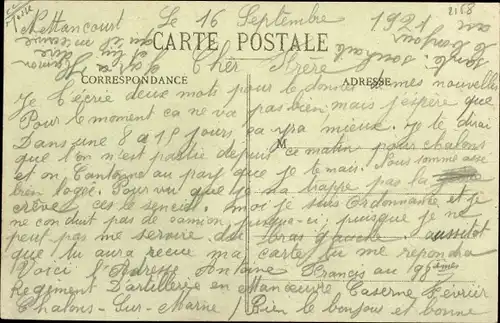 Nettancourt Le 16 Septembre 1921
2168
CARTE POSTALE
Cher Frère
CORRESPONDANCE
ADRESSE
Je t'écrie deux mots pour te donner de mes nouvelles
Pour le moment ca ne va pas bien, mais j'espère que
Dans une 8 a 15 jours, ca yra mieux. Je te dirai
M
que l'on n'est partie depuis ce matin pour chalons
et on Cantonne au parf que je te mais. Nous somme assé
bien logée. Pourvu que je n'a trappe pas la
crève ces le sencial. moi je sous Ordonnance et je
ne conduit pas de camion jusqua-ci; puisque je ne
peut pas me servire du bras gauche. aussitot
que tu aura recue ma carte, tu me repondra
Voici l'Adresse Antoine Francis au 19 èmes
Regiment D'artillerie en Manœuvre Caserne Fevrier
Chalons-Sur-Marne / Bien le bonjour et bonne